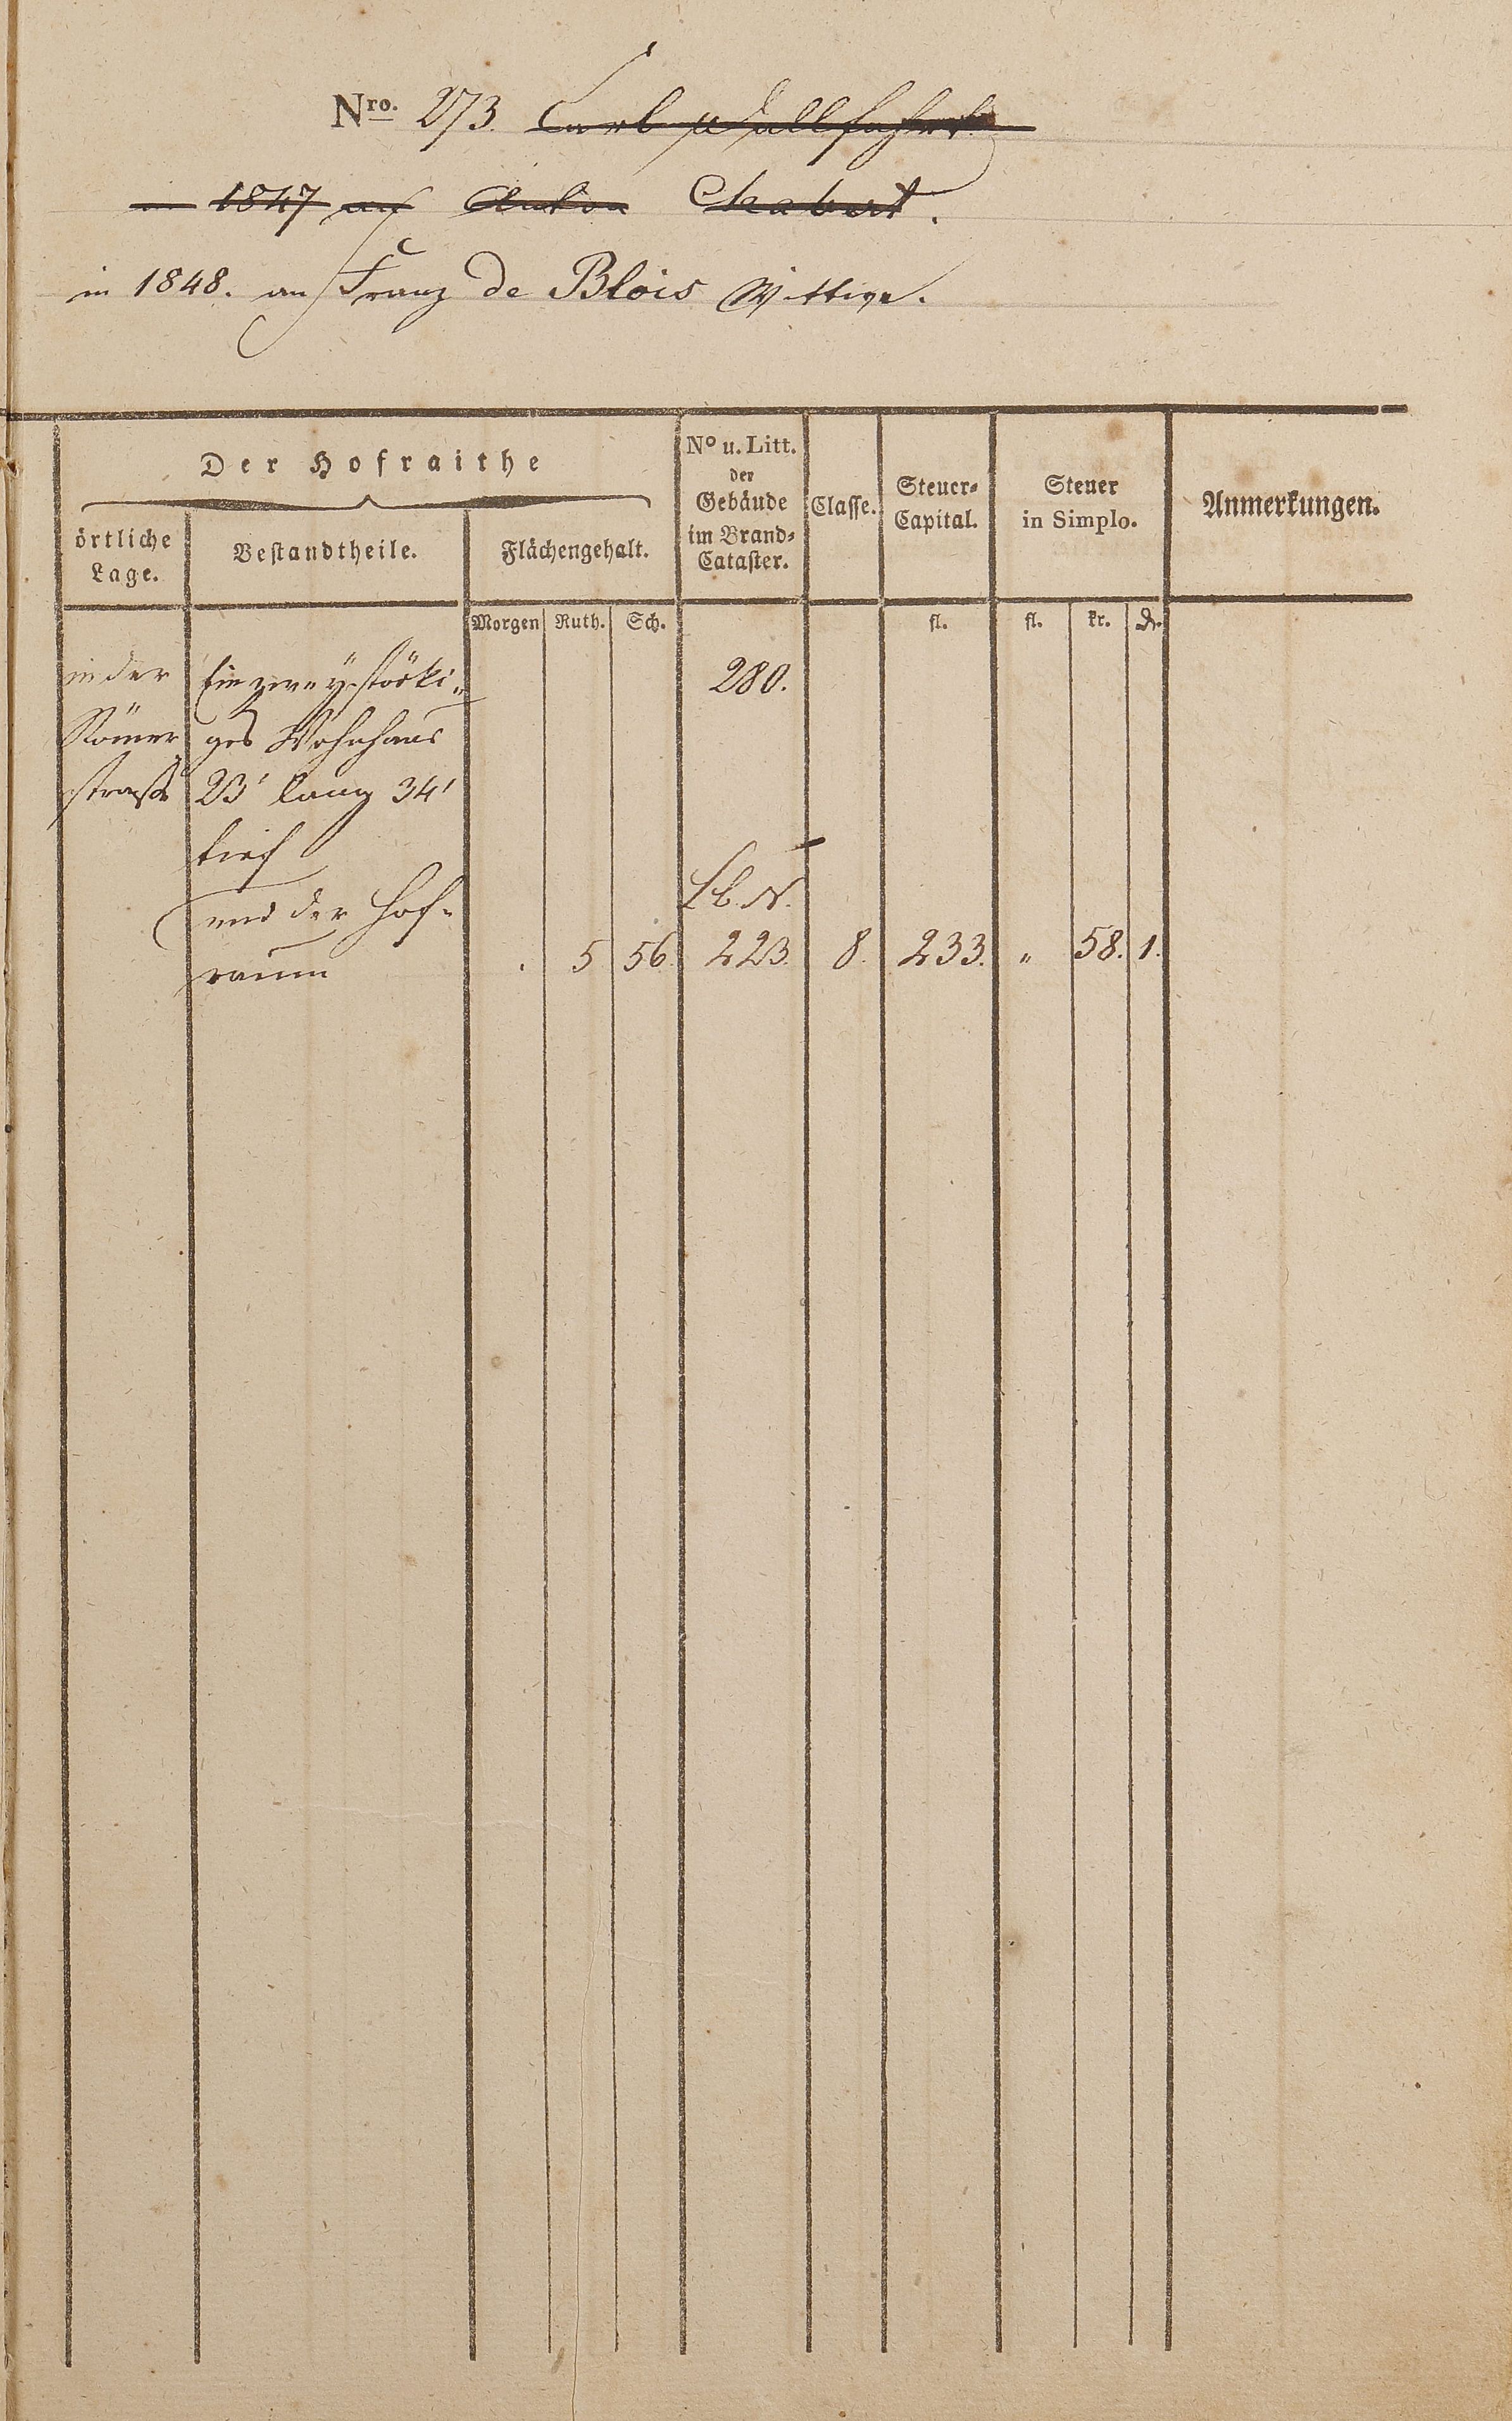 Nro. 273. Carl Wallfahrt
in 1847 an Anton Chabert.
in 1848. an Franz de Blois Wittwe.
Der Hofraithe
örtliche Lage.
Bestandtheile.
Flächengehalt.
No u. Litt. der Gebäude im Brand-Cataster.
Classe.
Steuer-Capital.
Steuer in Simplo.
Anmerkungen.
Morgen Ruth. Sch. fl. fl. kr. d.
in der Ein zwey-stöcki- 280.
Römer ges Wohnhaus
strasse 23' lang 34'
tief
und der Hof- Lb. N.
raum . 5 56. 223. 8. 233. " 58. 1.